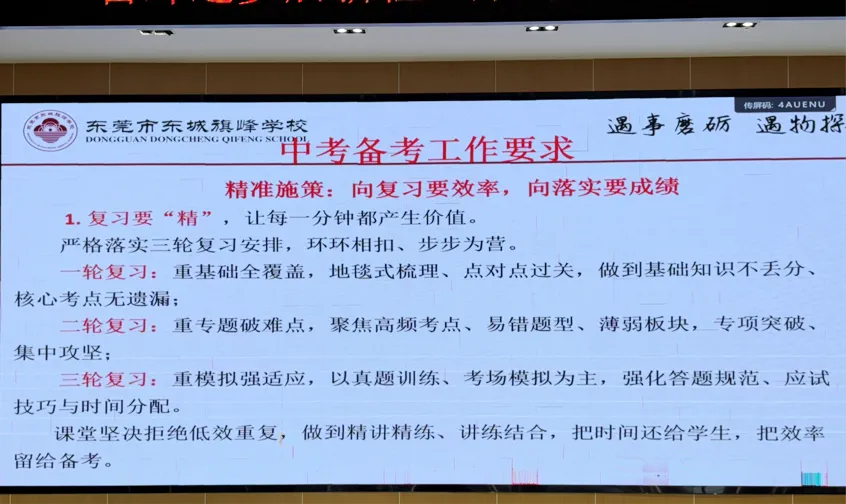 传屏码: 4AUENU
东莞市东城旗峰学校
DONGGUAN DONGCHENG QIFENG SCHOOL
遇事磨砺 遇物探
中考备考工作要求
精准施策：向复习要效率，向落实要成绩
1. 复习要“精”，让每一分钟都产生价值。
严格落实三轮复习安排，环环相扣、步步为营。
一轮复习：重基础全覆盖，地毯式梳理、点对点过关，做到基础知识不丢分、
核心考点无遗漏；
二轮复习：重专题破难点，聚焦高频考点、易错题型、薄弱板块，专项突破、
集中攻坚；
三轮复习：重模拟强适应，以真题训练、考场模拟为主，强化答题规范、应试
技巧与时间分配。
课堂坚决拒绝低效重复，做到精讲精练、讲练结合，把时间还给学生，把效率
留给备考。